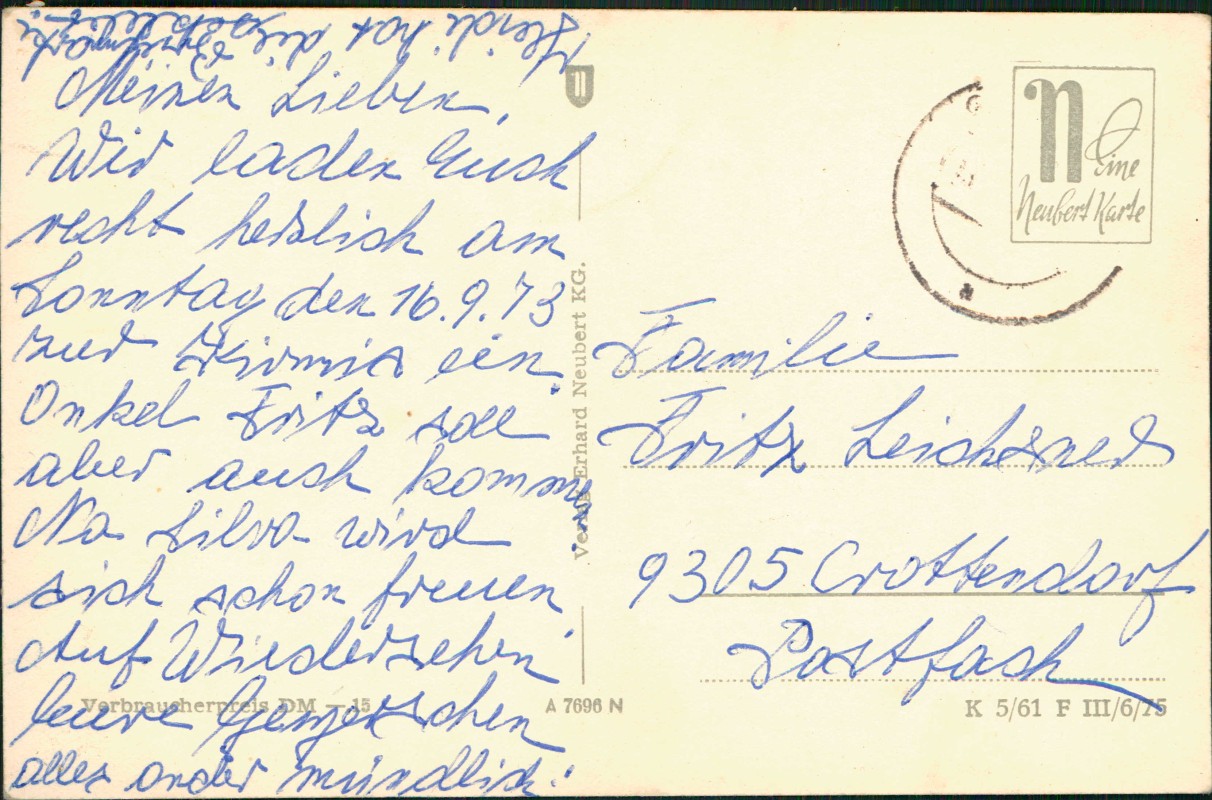 Heidi hat die
Meinen Lieben,
Wir laden Euch
recht herzlich am
Sonntag den 16.9.73
zur Kirmis ein
Onkel Fritz soll
aber auch kommen
Na Silva wird
sich schon freuen
Auf Wiedersehen
Eure
alles ander mündlich.
Verbraucherpreis DM — 15
A 7696 N
Verlag Erhard Neubert KG.
N
Eine
Neubert Karte
Familie
Fritz Leichsner
9305 Crottendorf
Postfach
K 5/61 F III/6/75